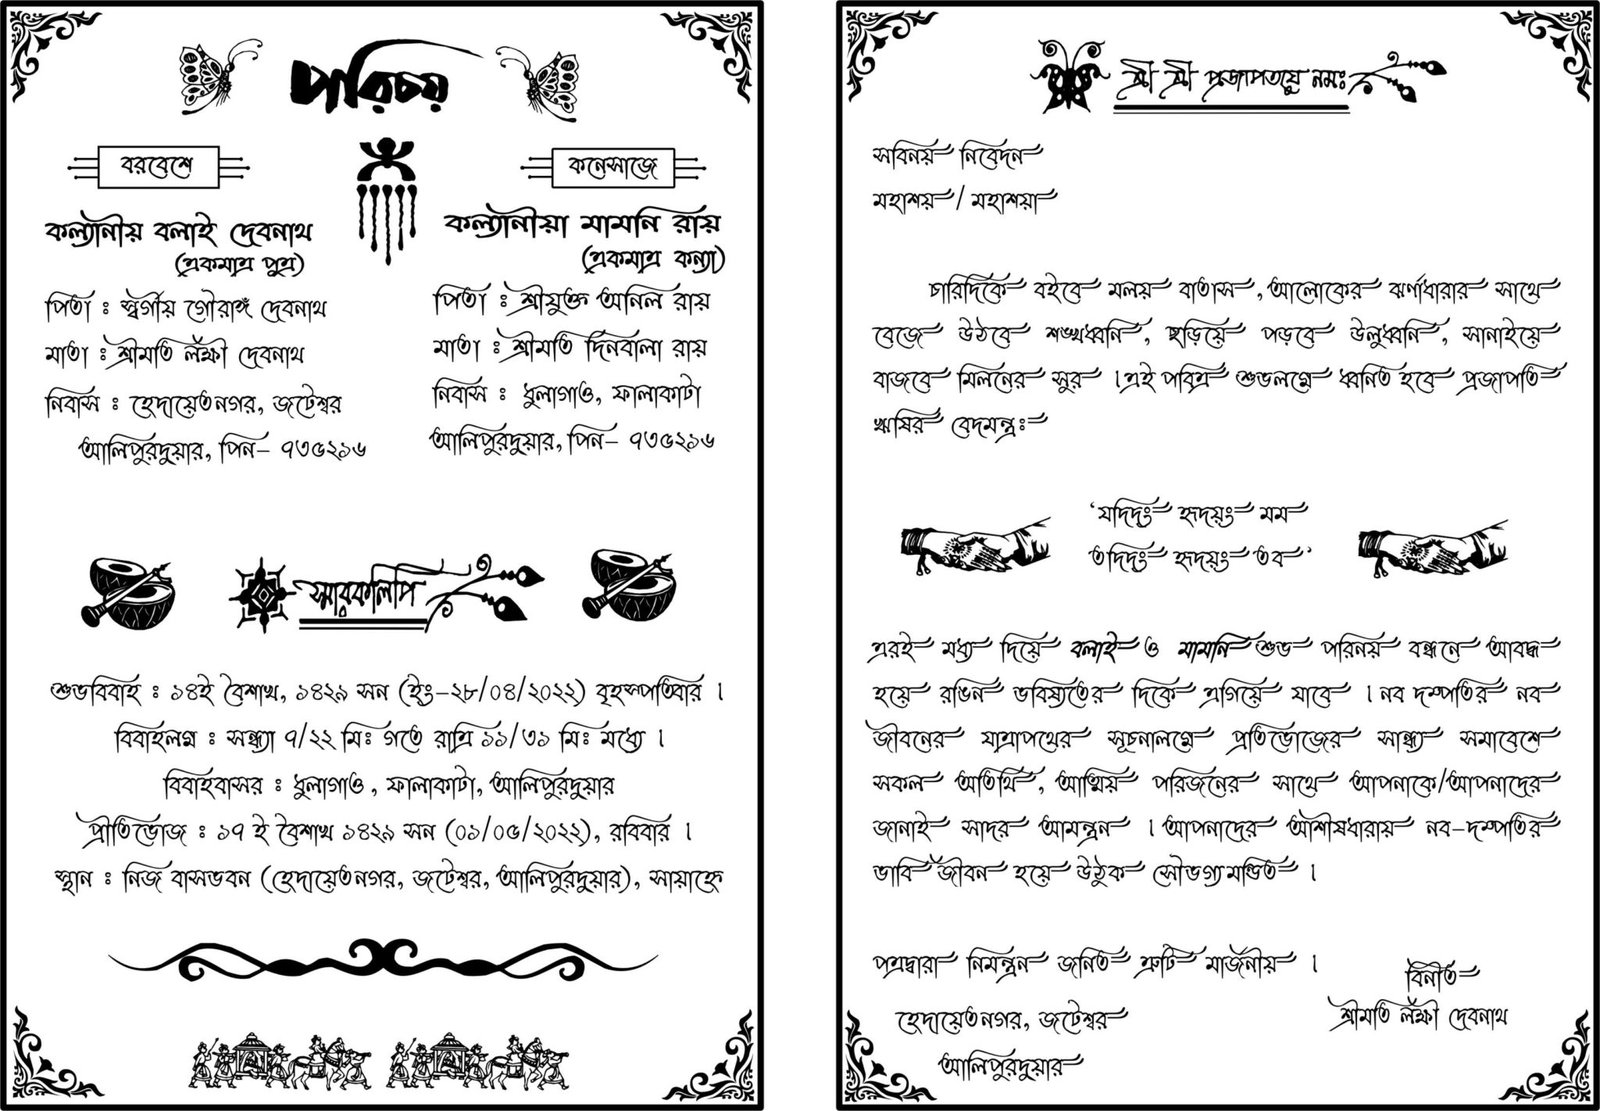 পরিচয়
বরবেশে
কল্যানীয় বলাই দেবনাথ
(একমাত্র পুত্র)
পিতা : স্বর্গীয় গৌরাঙ্গ দেবনাথ
মাতা : শ্রীমতি লক্ষ্মী দেবনাথ
নিবাস : হেদায়েতনগর, জটেশ্বর
আলিপুরদুয়ার, পিন- ৭৩৫২১৬
কনেসাজে
কল্যানীয়া মামনি রায়
(একমাত্র কন্যা)
পিতা : শ্রীযুক্ত অনিল রায়
মাতা : শ্রীমতি দিনবালা রায়
নিবাস : ধুলাগাও, ফালাকাটা
আলিপুরদুয়ার, পিন- ৭৩৫২১৬
স্মারকলিপি
শুভবিবাহ : ১৪ই বৈশাখ, ১৪২৯ সন (ইং-২৮/০৪/২০২২) বৃহস্পতিবার ।
বিবাহলগ্ন : সন্ধ্যা ৭/২২ মিঃ গতে রাত্রি ১১/৩১ মিঃ মধ্যে ।
বিবাহবাসর : ধুলাগাও, ফালাকাটা, আলিপুরদুয়ার
প্রীতিভোজ : ১৭ ই বৈশাখ ১৪২৯ সন (০১/০৫/২০২২), রবিবার ।
স্থান : নিজ বাসভবন (হেদায়েতনগর, জটেশ্বর, আলিপুরদুয়ার), সায়াহ্নে
শ্রী শ্রী প্রজাপতয়ে নমঃ
সবিনয় নিবেদন
মহাশয়/ মহাশয়া
চারিদিকে বইবে মলয় বাতাস ,আলোকের ঝর্ণাধারার সাথে
বেজে উঠবে শঙ্খধ্বনি, ছড়িয়ে পড়বে উলুধ্বনি, সানাইয়ে
বাজবে মিলনের সুর ।এই পবিত্র শুভলগ্নে ধ্বনিত হবে প্রজাপতি
ঋষির বেদমন্ত্রঃ
‘যদিদং হৃদয়ং মম
তদিদং হৃদয়ং তব’
এরই মধ্য দিয়ে বলাই ও মামনি শুভ পরিনয় বন্ধনে আবদ্ধ
হয়ে রঙিন ভবিষ্যতের দিকে এগিয়ে যাবে ।নব দম্পতির নব
জীবনের যাত্রাপথের সূচনালগ্নে প্রতিভোজের সান্ধ্য সমাবেশে
সকল অতিথি, আত্মিয় পরিজনের সাথে আপনাকে/আপনাদের
জানাই সাদর আমন্ত্রন ।আপনাদের আশীষধারায় নব-দম্পতির
ভাবি জীবন হয়ে উঠুক সৌভগ্যমন্ডিত ।
পত্রদ্বারা নিমন্ত্রন জনিত ত্রুটি মার্জনীয় ।
হেদায়েতনগর, জটেশ্বর
আলিপুরদুয়ার
বিনীত
শ্রীমতি লক্ষ্মী দেবনাথ